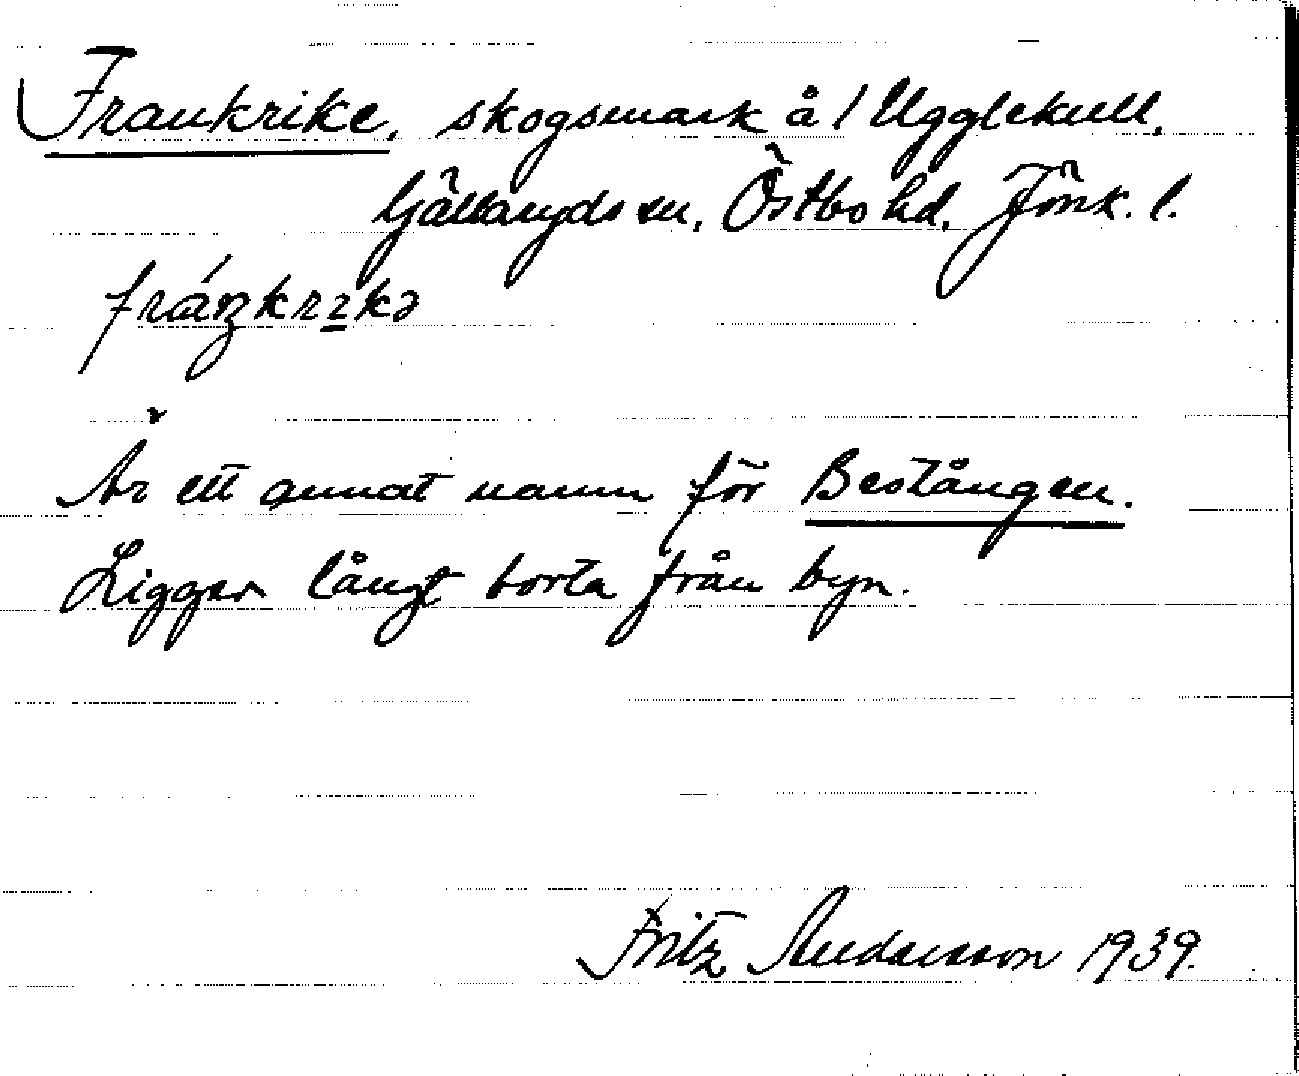 Frankrike, skogsmark å / Ugglekull,
Gällaryds sn, Östbo hd, Jönk. l.
fráŋkrikə
Är ett annat namn för Bestången.
Ligger långt borta från byn.
Fritz Andersson 1939.